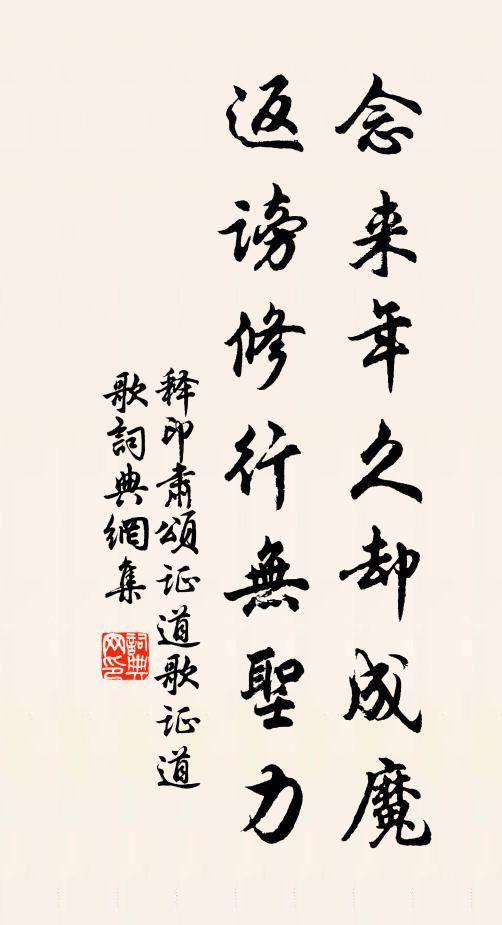 念来年久却成魔
返謗修行無聖力
释印肃頌证道歌证道
歌詞典網集
詞典
网印